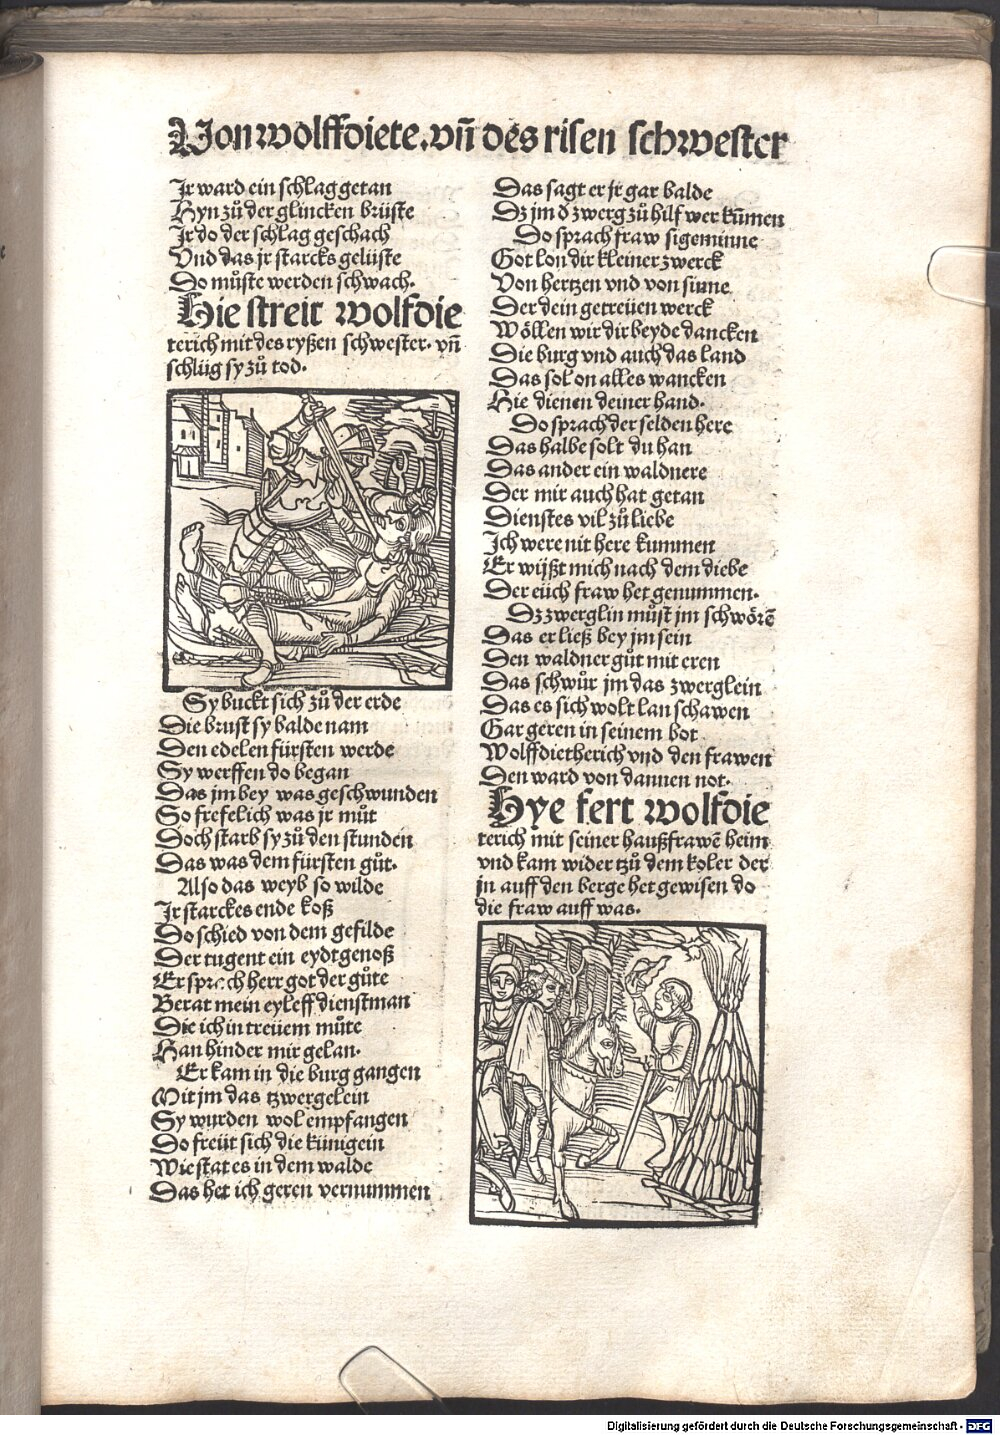 Von wolffdiete. vñ des risen schwester
Ir ward ein schlag getan
Hyn zů der glincken brüste
Ir do der schlag geschach
Vnd das jr starcks gelüste
Do můste werden schwach.
Hie streit wolfdie
terich mit des ryßen schwester. vñ
schlüg sy zů tod.
Sy buckt sich zů der erde
Die brust sy balde nam
Den edelen fürsten werde
Sy werffen do began
Das jm bey was geschwunden
So frefelich was jr můt
Doch starb sy zů den stunden
Das was dem fürsten gůt.
Also das weyb so wilde
Ir starckes ende koß
Do schied von dem gefilde
Der tugent ein eydtgenoß
Er sprach herr got der gůte
Berat mein eyleff dienstman
Die ich in treüem můte
Han hinder mir gelan.
Er kam in die burg gangen
Mit jm das tzwergelein
Sy wurden wol empfangen
Do freüt sich die künigein
Wie stat es in dem walde
Das het ich geren vernummen
Das sagt er jr gar balde
Dz jm d zwerg zů hilf wer kům̃en
Do sprach fraw sigeminne
Got lon dir kleiner zwerck
Von hertzen vnd von sinne
Der dein getreüen werck
Wöllen wir dir beyde dancken
Die burg vnd auch das land
Das sol on alles wancken
Hie dienen deiner hand.
Do sprach der selden here
Das halbe solt du han
Das ander ein waldnere
Der mir auch hat getan
Dienstes vil zů liebe
Ich were nit here kummen
Er wijßt mich nach dem diebe
Der eüch fraw het genummen.
Dz zwerglin můst jm schwörē
Das er ließ bey jm sein
Den waldner gůt mit eren
Das schwůr jm das zwerglein
Das es sich wolt lan schawen
Gar geren in seinem bot
Wolffdietherich vnd den frawen
Den ward von dannen not.
Hye fert wolfdie
terich mit seiner haußfrawē heim
vnd kam wider tzů dem koler der
jn auff den berge het gewisen do
die fraw auff was.
Digitalisierung gefördert durch die Deutsche Forschungsgemeinschaft - DFG